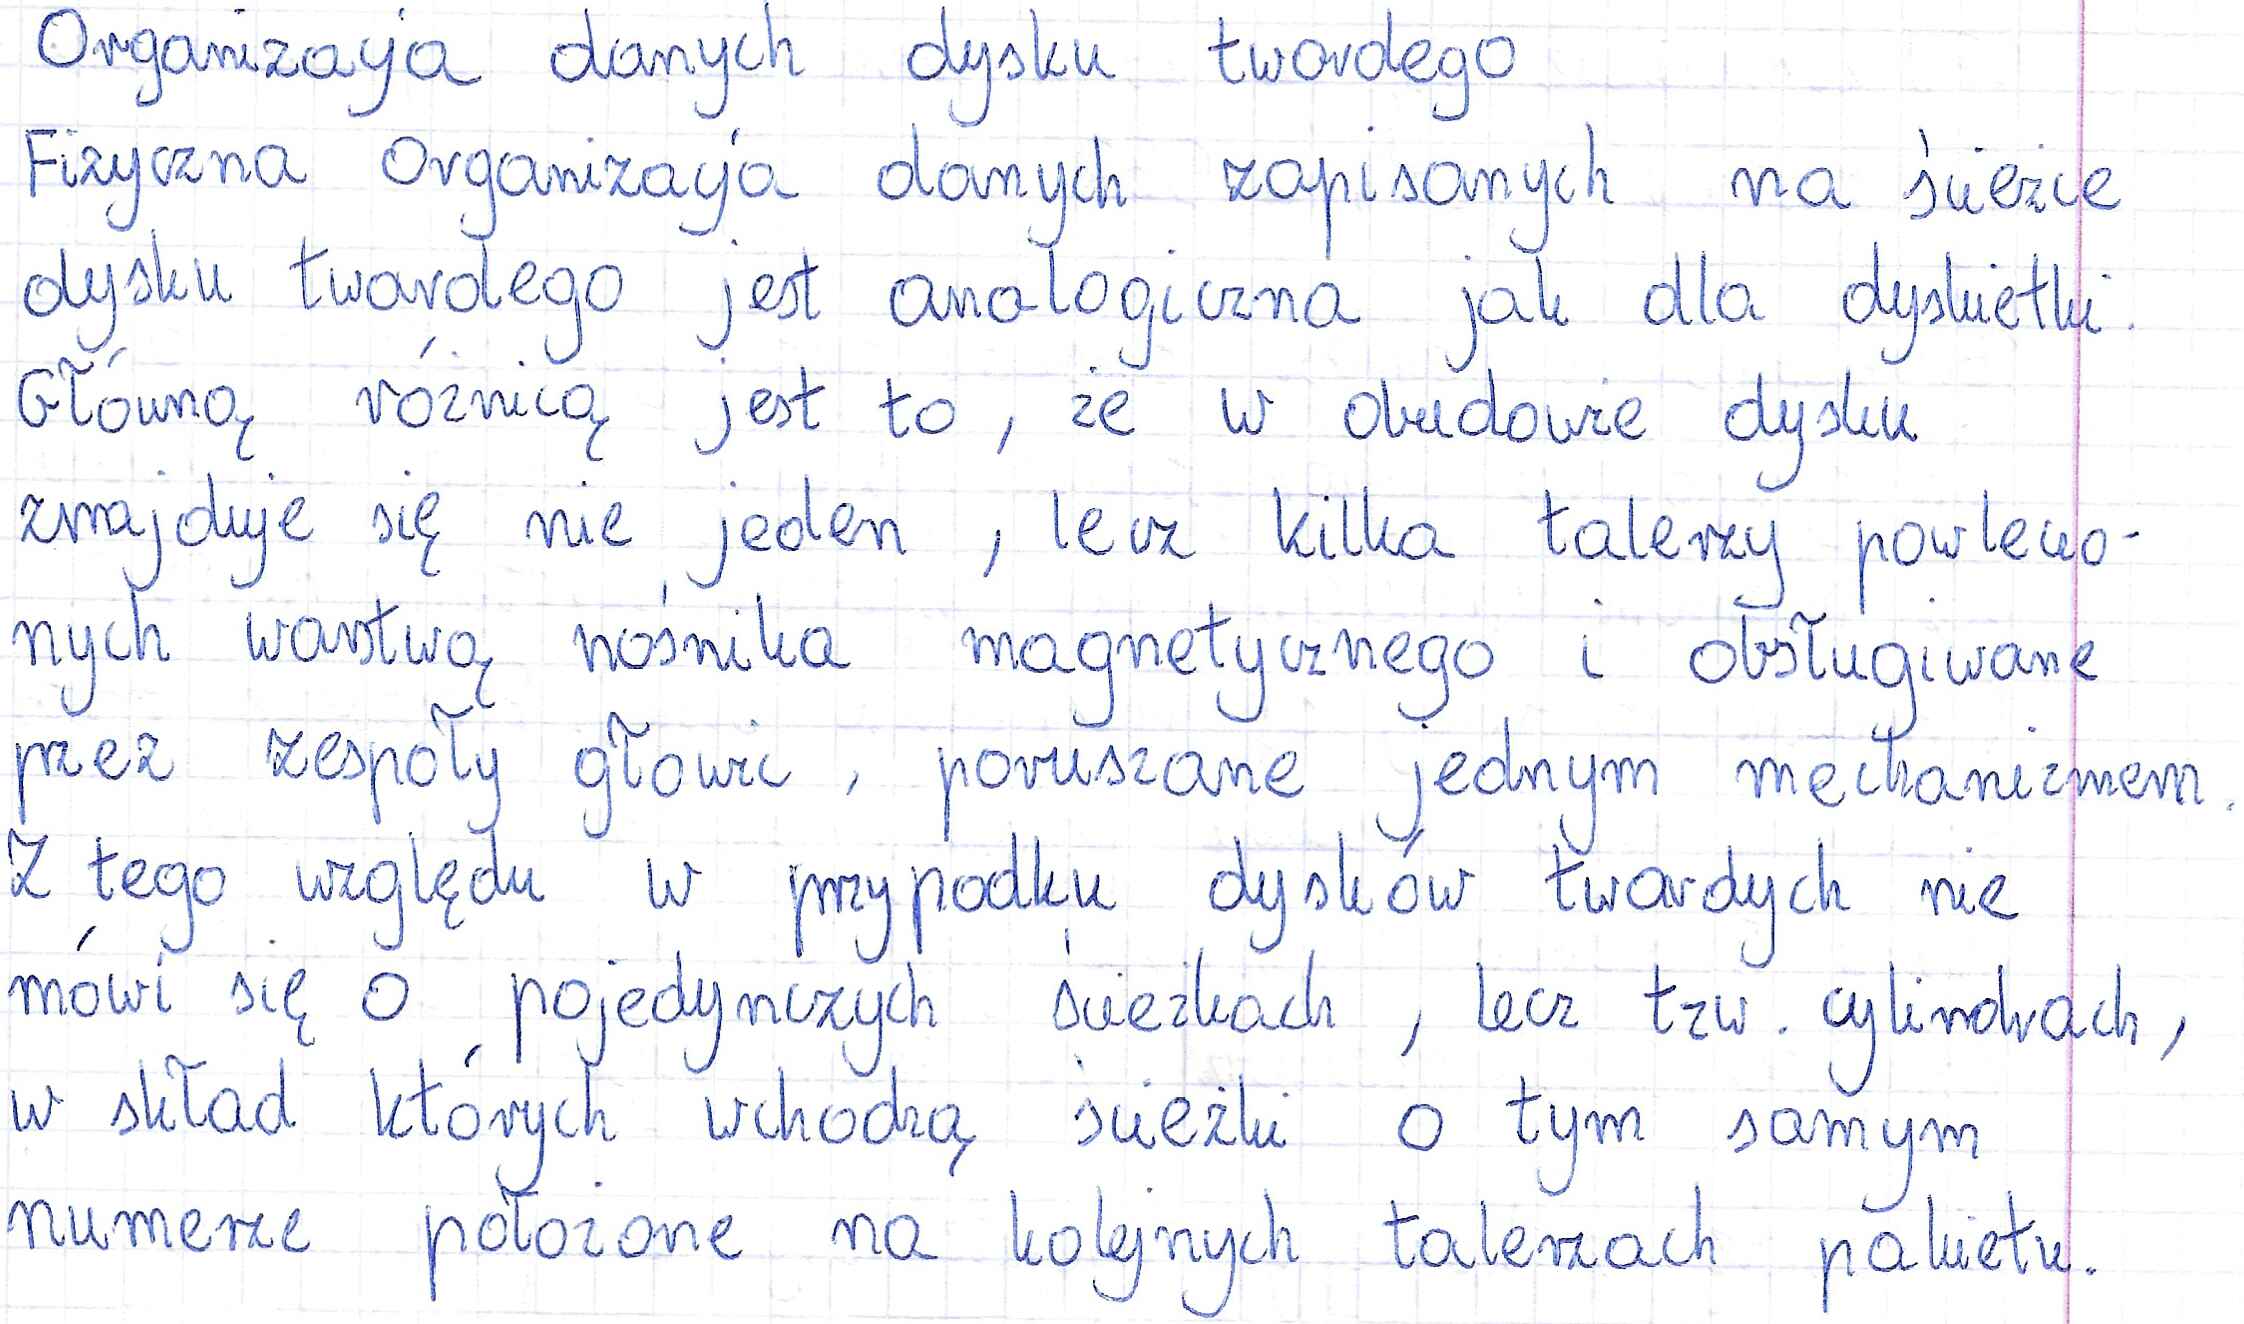 Organizacja danych dysku twardego
Fizyczna organizacja danych zapisanych na ścieżce
dysku twardego jest analogiczna jak dla dyskietki.
Główną różnicą jest to, że w obudowie dysku
znajduje się nie jeden, lecz kilka talerzy powleco-
nych warstwą nośnika magnetycznego i obsługiwane
przez zespóły głowic, poruszane jednym mechanizmem.
Z tego względu w przypadku dysków twardych nie
mówi się o pojedynczych ścieżkach, lecz tzw. cylindrach,
w skład których wchodzą ścieżki o tym samym
numerze położone na kolejnych talerzach pakietu.